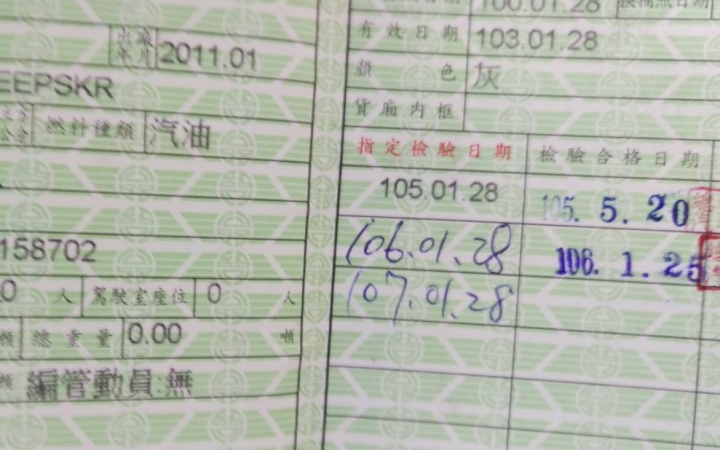 出廠年月 2011.01
EEPSKR
燃料種類 汽油
158702
0 人 駕駛室座位 0 人
噸 總重量 0.00 噸
編管動員:無
100.01.28 換補照日期
有效日期 103.01.28
顏色 灰
貨廂內框
指定檢驗日期 檢驗合格日期
105.01.28 105. 5. 20
106.01.28 106. 1. 25
107.01.28